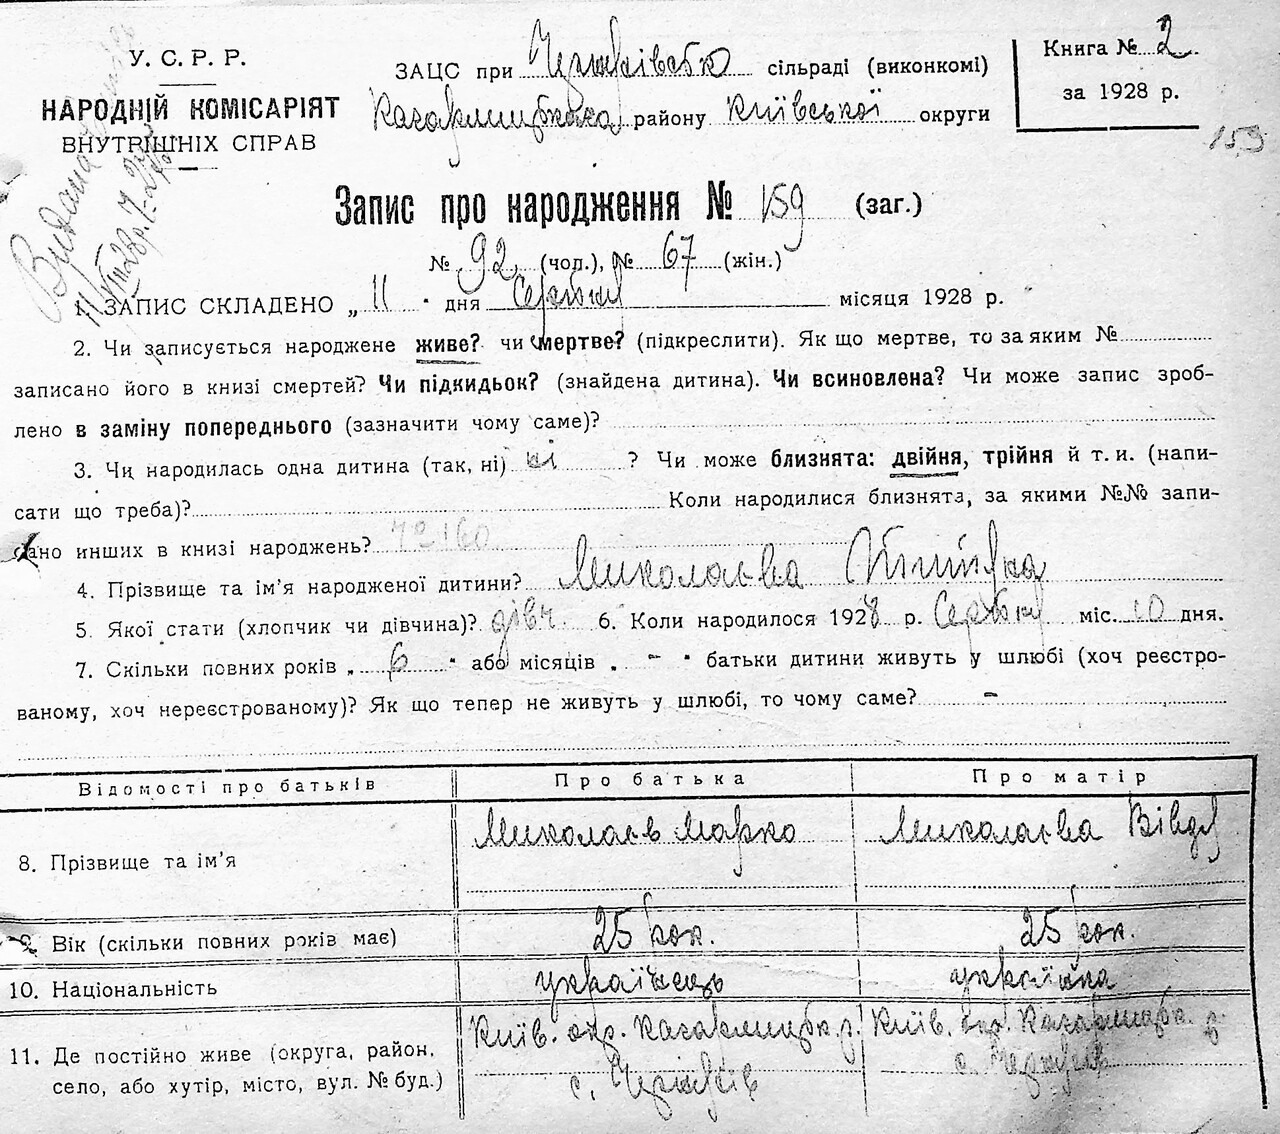 У. С. Р. Р.
НАРОДНІЙ КОМІСАРІЯТ
ВНУТРІШНІХ СПРАВ
Видана
ЗАЦС при сільраді (виконкомі)
району Київської округи
Книга № 2
за 1928 р.
159
Запис про народження № 159 (заг.)
№ 92 (чол.), № 67 (жін.)
1. ЗАПИС СКЛАДЕНО „ 11 " дня Серпня місяця 1928 р.
2. Чи записується народжене живе? чи мертве? (підкреслити). Як що мертве, то за яким №
записано його в книзі смертей? Чи підкидьок? (знайдена дитина). Чи всиновлена? Чи може запис зроб-
лено в заміну попереднього (зазначити чому саме)?
3. Чи народилась одна дитина (так, ні) ні ? Чи може близнята: двійня, трійня й т. и. (напи-
сати що треба)? Коли народилися близнята, за якими №№ запи-
сано инших в книзі народжень? 160
4. Прізвище та ім'я народженої дитини? Миколаєва
5. Якої стати (хлопчик чи дівчина)? дівч. 6. Коли народилося 1928 р. Серпня міс. 10 дня.
7. Скільки повних років „ 6 " або місяців „ - " батьки дитини живуть у шлюбі (хоч реєстро-
ваному, хоч нереєстрованому)? Як що тепер не живуть у шлюбі, то чому саме? -
Відомості про батьків Про батька Про матір
8. Прізвище та ім'я Миколаєв Марко Миколаєва Вівдя
9. Вік (скільки повних років має) 25 рок. 25 рок.
10. Національність українець українка
11. Де постійно живе (округа, район, Київ. окр. Кагарлицьк. р. Київ. окр. Кагарлицьк. р.
село, або хутір, місто, вул. № буд.) с. с.